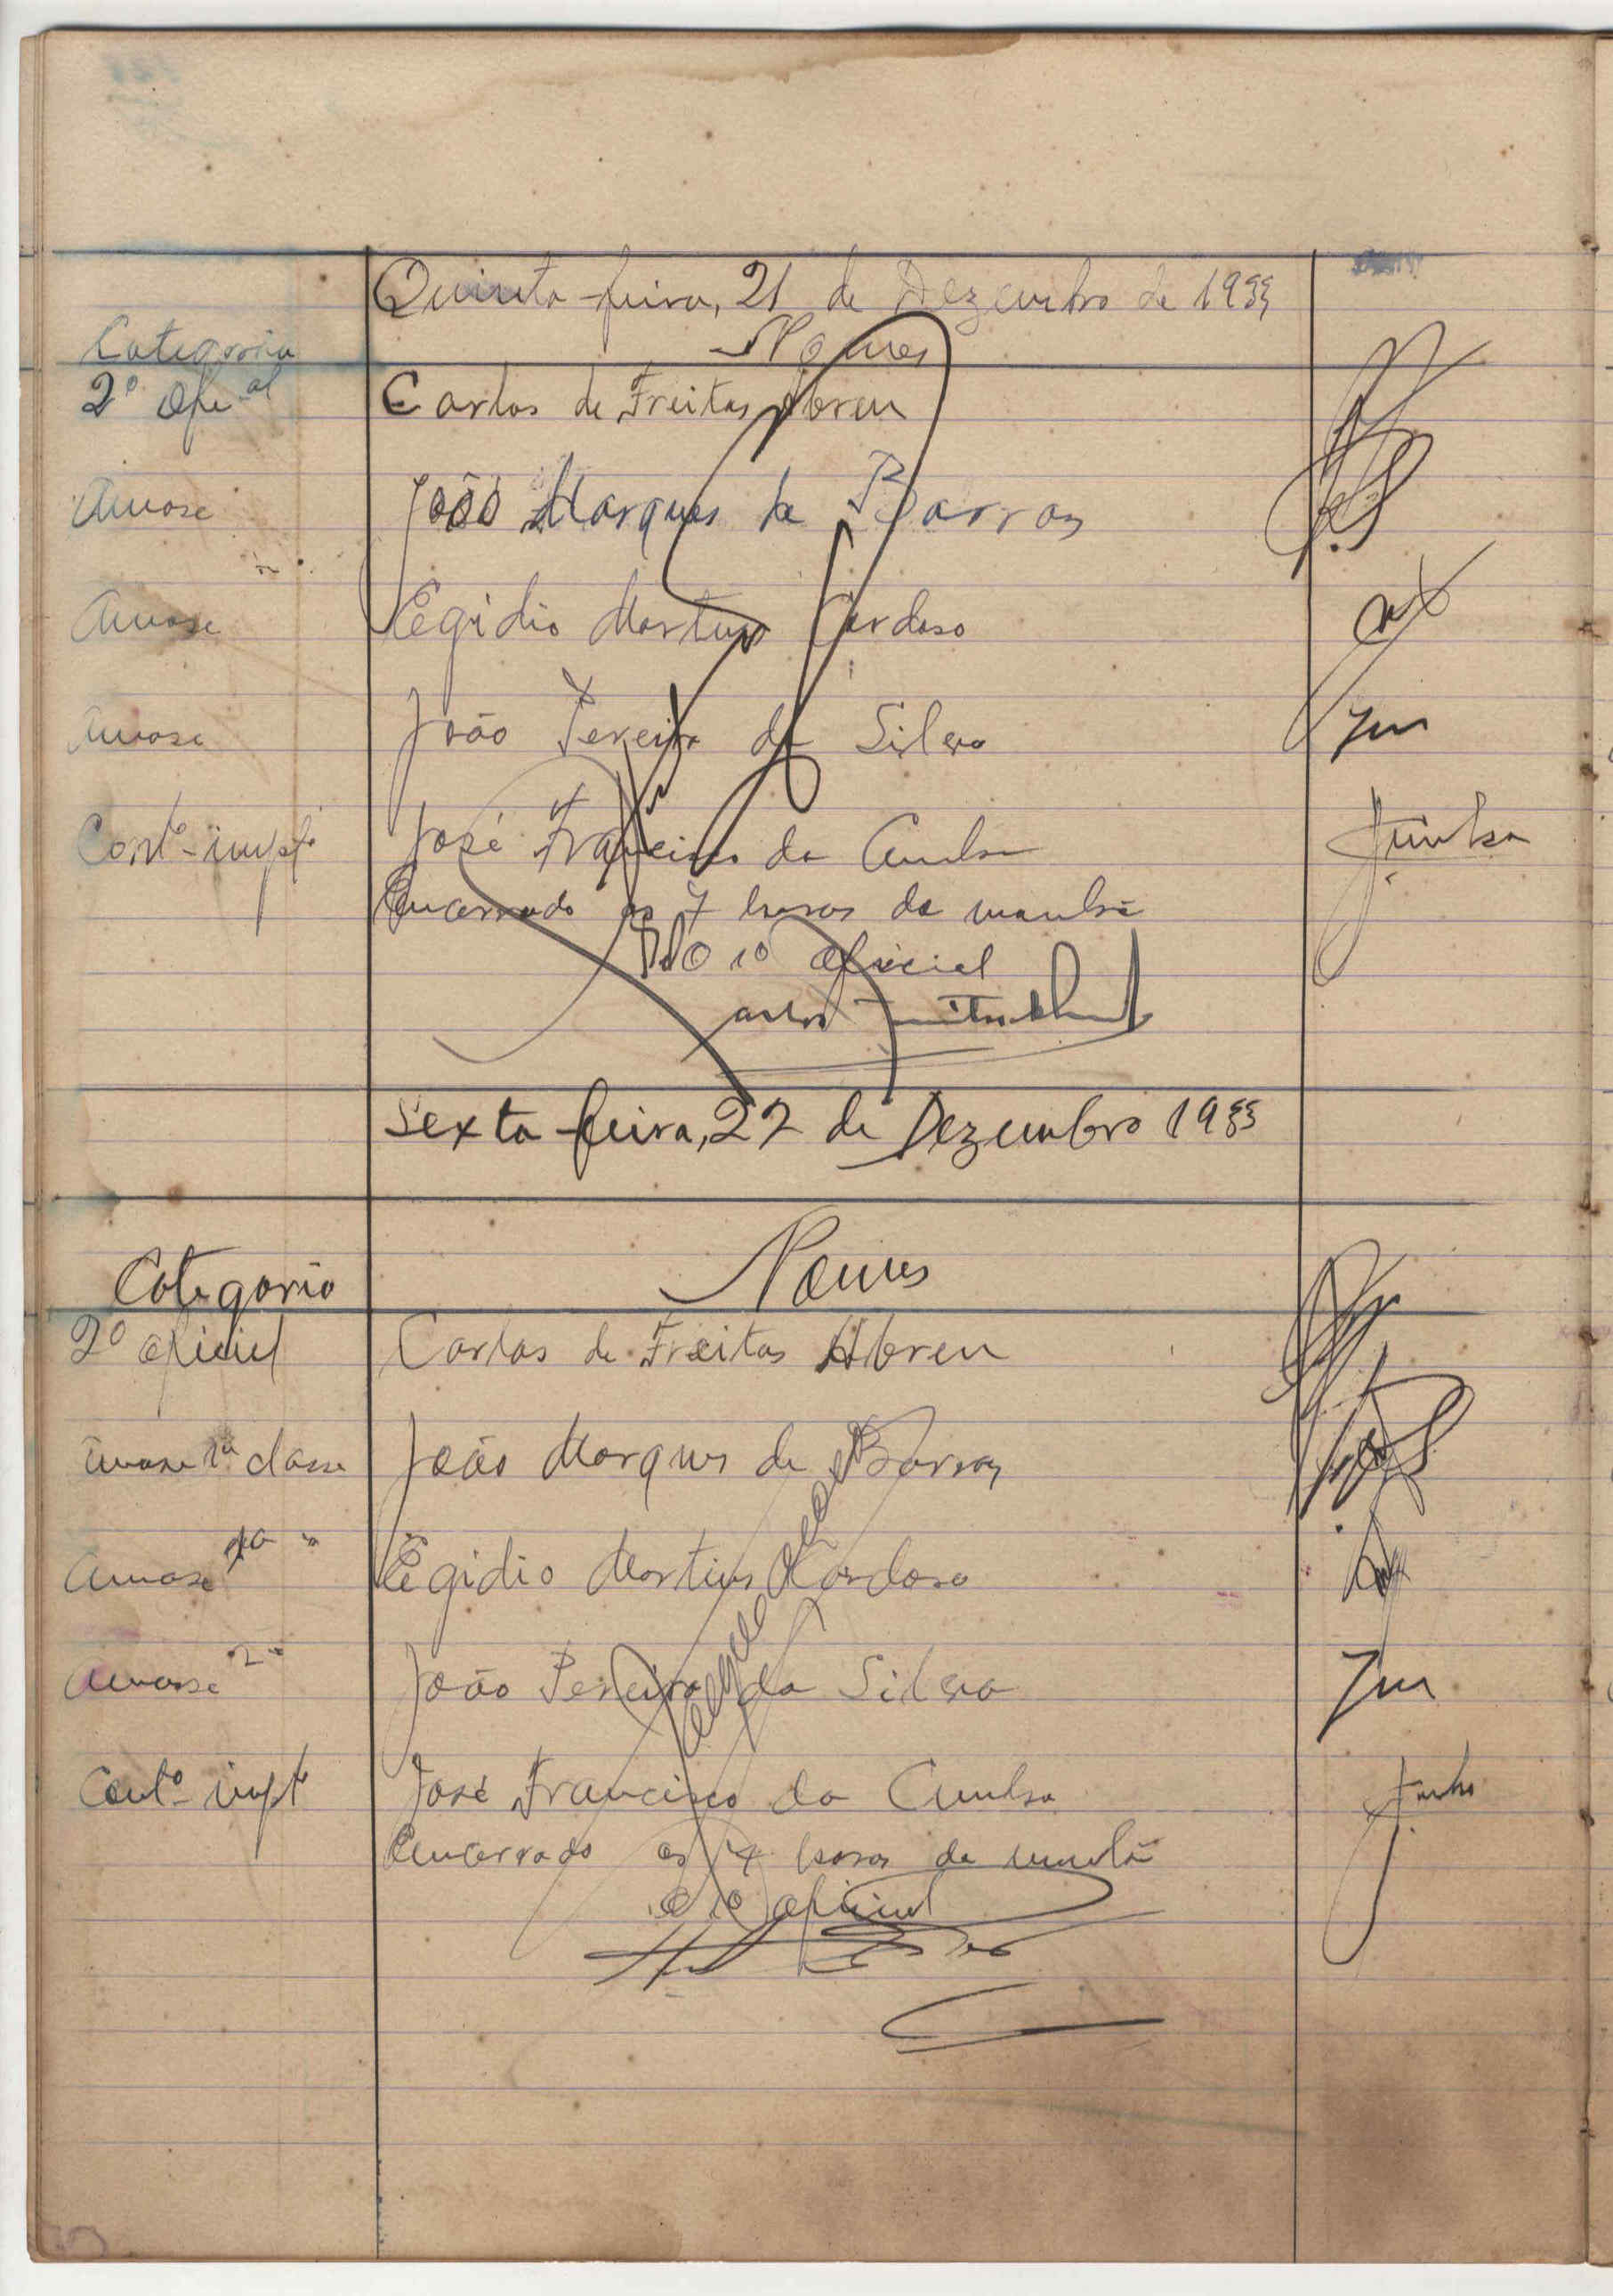 Quinta-feira, 21 de Dezembro de 1933
Categoria Nomes
2º Ofi.al Carlos de Freitas Abreu
João Marques de Barros
Egidio Martins Cardoso
João Pereira da Silva
Cont.º impt.º José Francisco da Cunha Cunha
Encerrado ás 7 horas da manhã
O 1º Oficial
Sexta-feira, 22 de Dezembro 1933
Categoria Nomes
2º oficial Carlos de Freitas Abreu
1ª classe João Marques de Barros
1ª " Egidio Martins Cardoso
2ª João Pereira da Silva
Cont.º impt.º José Francisco da Cunha
Encerrado ás 7 horas da manhã
O 1º oficial